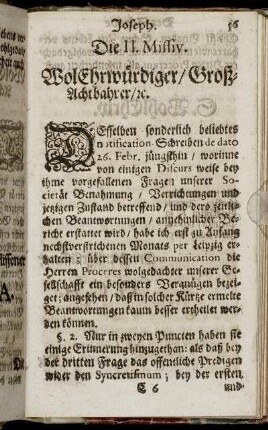 Joseph. 56
Die II. Missiv.
WolEhrwürdiger/ Groß-
Achtbahrer/ ꝛc.
DEsselben sonderlich beliebtes
Notification-Schreiben de dato
26. Febr. jüngsthin/ worinne
von einigen Discurs weise bey
ihme vorgefallenen Fragen unserer So-
cietät Benahmung/ Verrichtungen und
jetzigen Zustand betreffend/ und dero zeitli-
chen Beantwortungen/ Be-
richt erstattet wird/ habe ich erst zu Anfang
nechstverstrichenen Monats per Leipzig er-
halten; über dessen Communication die
Herren Proceres wolgedachter unserer Ge-
sellschafft ein besonders Vergnügen bezei-
get; angesehen/ daß in solcher Kürtze ermelte
Beantwortungen kaum besser ertheilet wer-
den können.
§. 2. Nur in zweyen Puncten haben sie
einige Erinnerung hinzugethan: als daß bey
der dritten Frage das offentliche Predigen
wider den Syncretismum; bey der ersten,
C 6 und-